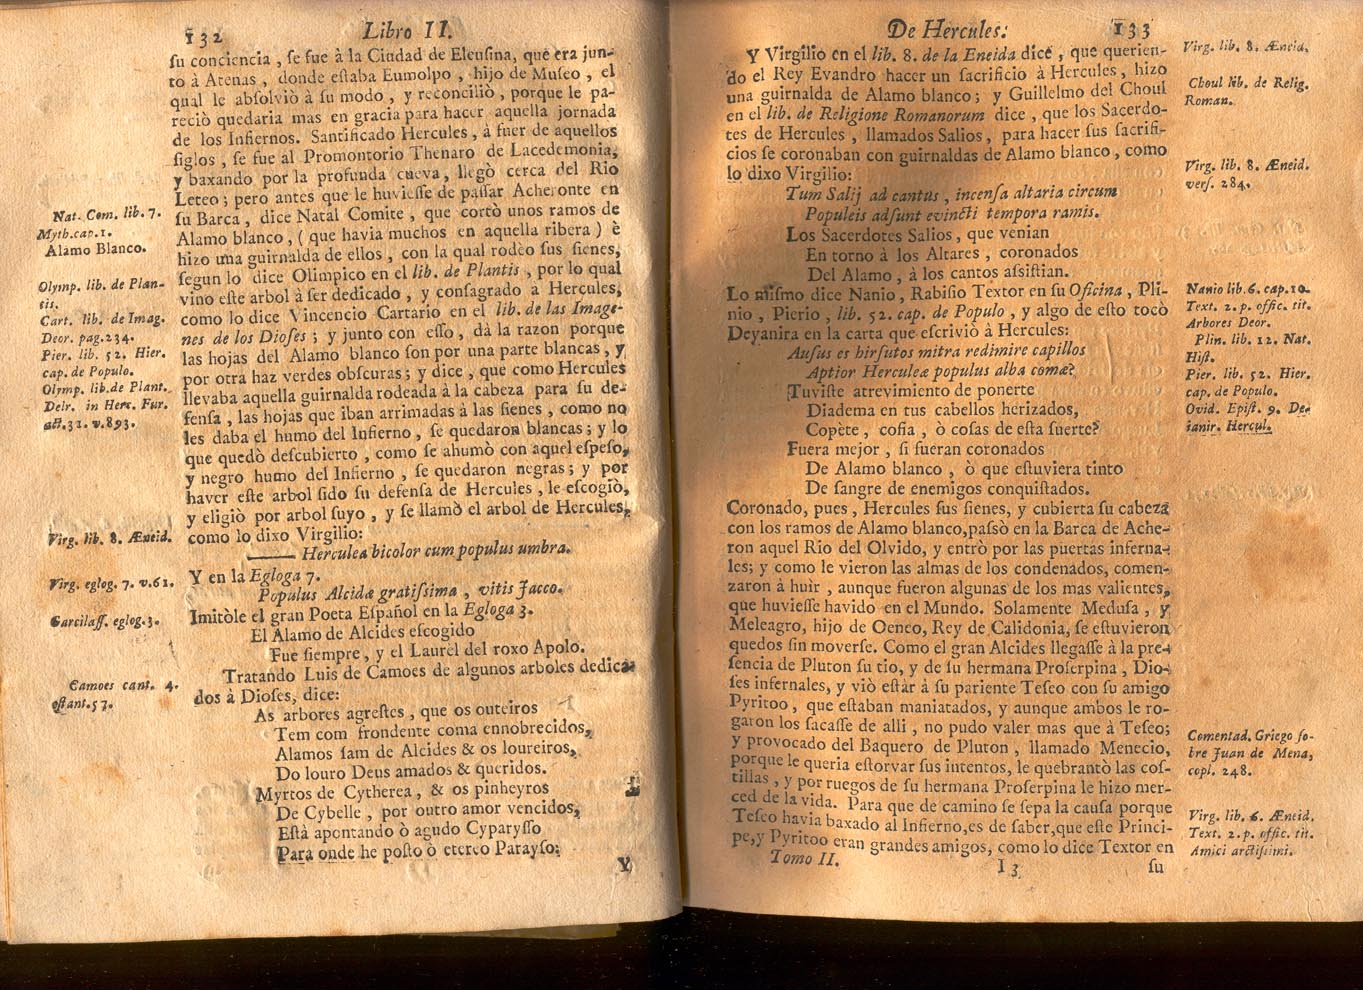 132 Libro II.
su conciencia, se fue à la Ciudad de Eleusina, que era jun-
to à Atenas, donde estaba Eumolpo, hijo de Museo, el
qual le absolviò à su modo, y reconciliò, porque le pa-
reciò quedaria mas en gracia para hacer aquella jornada
de los Infiernos. Santificado Hercules, à fuer de aquellos
siglos, se fue al Promontorio Thenaro de Lacedemonia,
y baxando por la profunda cueva, llegò cerca del Rio
Leteo; pero antes que le huviesse de passar Acheronte en
su Barca, dice Natal Comite, que cortò unos ramos de
Alamo blanco, (que havia muchos en aquella ribera) è
hizo una guirnalda de ellos, con la qual rodeò sus sienes,
segun lo dice Olimpico en el lib. de Plantis, por lo qual
vino este arbol à ser dedicado, y consagrado à Hercules,
como lo dice Vincencio Cartario en el lib. de las Image-
nes de los Dioses; y junto con esso, dà la razon porque
las hojas del Alamo blanco son por una parte blancas, y
por otra haz verdes obscuras; y dice, que como Hercules
llevaba aquella guirnalda rodeada à la cabeza para su de-
fensa, las hojas que iban arrimadas à las sienes, como no
les daba el humo del Infierno, se quedaron blancas; y lo
que quedò descubierto, como se ahumò con aquel espeso,
y negro humo del Infierno, se quedaron negras; y por
haver este arbol sido su defensa de Hercules, le escogiò,
y eligiò por arbol suyo, y se llamò el arbol de Hercules,
como lo dixo Virgilio:
—— Herculea bicolor cum populus umbra.
Y en la Egloga 7.
Populus Alcidæ gratissima, vitis Jacco.
Imitòle el gran Poeta Español en la Egloga 3.
El Alamo de Alcides escogido
Fue siempre, y el Laurèl del roxo Apolo.
Tratando Luis de Camoes de algunos arboles dedica-
dos à Dioses, dice:
As arbores agrestes, que os outeiros
Tem com frondente coma ennobrecidos,
Alamos sam de Alcides & os loureiros,
Do louro Deus amados & queridos.
Myrtos de Cytherea, & os pinheyros
De Cybelle, por outro amor vencidos,
Està apontando ò agudo Cyparysso
Para onde he posto ò etereo Parayso:
Y
Nat. Com. lib. 7.
Myth. cap. 1.
Alamo Blanco.
Olymp. lib. de Plan-
tis.
Cart. lib. de Imag.
Deor. pag. 234.
Pier. lib. 52. Hier.
cap. de Populo.
Olymp. lib. de Plant.
Delr. in Herc. Fur.
act. 31. v. 893.
Virg. lib. 8. Æneid.
Virg. eglog. 7. v. 61.
Garcilass. eglog. 3.
Camoes cant. 4.
estant. 57.
De Hercules. 133
Y Virgilio en el lib. 8. de la Eneida dice, que querien-
do el Rey Evandro hacer un sacrificio à Hercules, hizo
una guirnalda de Alamo blanco; y Guillelmo del Choul
en el lib. de Religione Romanorum dice, que los Sacerdo-
tes de Hercules, llamados Salios, para hacer sus sacrifi-
cios se coronaban con guirnaldas de Alamo blanco, como
lo dixo Virgilio:
Tum Salij ad cantus, incensa altaria circum
Populeis adsunt evincti tempora ramis.
Los Sacerdotes Salios, que venian
En torno à los Altares, coronados
Del Alamo, à los cantos assistian.
Lo mismo dice Nanio, Rabisio Textor en su Oficina, Pli-
nio, Pierio, lib. 52. cap. de Populo, y algo de esto tocò
Deyanira en la carta que escriviò à Hercules:
Ausus es hirsutos mitra redimire capillos
Aptior Herculeæ populus alba comæ?
Tuviste atrevimiento de ponerte
Diadema en tus cabellos herizados,
Copete, cofia, ò cosas de esta suerte?
Fuera mejor, si fueran coronados
De Alamo blanco, ò que estuviera tinto
De sangre de enemigos conquistados.
Coronado, pues, Hercules sus sienes, y cubierta su cabeza
con los ramos de Alamo blanco, passò en la Barca de Ache-
ron aquel Rio del Olvido, y entrò por las puertas inferna-
les; y como le vieron las almas de los condenados, comen-
zaron à huir, aunque fueron algunas de los mas valientes,
que huviesse havido en el Mundo. Solamente Medusa, y
Meleagro, hijo de Oeneo, Rey de Calidonia, se estuvieron
quedos sin moverse. Como el gran Alcides llegasse à la pre-
sencia de Pluton su tio, y de su hermana Proserpina, Dio-
ses infernales, y viò estàr à su pariente Teseo con su amigo
Pyritoo, que estaban maniatados, y aunque ambos le ro-
garon los sacasse de alli, no pudo valer mas que à Teseo;
y provocado del Baquero de Pluton, llamado Menecio,
porque le queria estorvar sus intentos, le quebrantò las cos-
tillas, y por ruegos de su hermana Proserpina le hizo mer-
ced de la vida. Para que de camino se sepa la causa porque
Teseo havia baxado al Infierno, es de saber, que este Princi-
pe, y Pyritoo eran grandes amigos, como lo dice Textor en
Tomo II. I 3 su
Virg. lib. 8. Æneid,
Choul lib. de Relig.
Roman.
Virg. lib. 8. Æneid.
vers. 284.
Nanio lib. 6. cap. 10.
Text. 2. p. offic. tit.
Arbores Deor.
Plin. lib. 12. Nat.
Hist.
Pier. lib. 52. Hier.
cap. de Populo.
Ovid. Epist. 9. De-
ianir. Hercul.
Comentad. Griego so-
bre Juan de Mena,
copl. 248.
Virg. lib. 6. Æneid.
Text. 2. p. offic. tit.
Amici arctissimi.